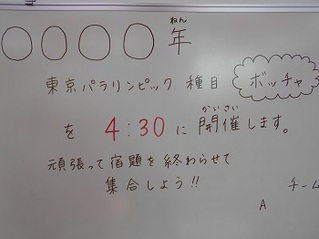 〇〇〇〇年
ねん
東京パラリンピック 種目 ボッチャ
を 4:30 に 開催します。
かいさい
頑張って宿題を終わらせて
集合しよう!!
チーム
A